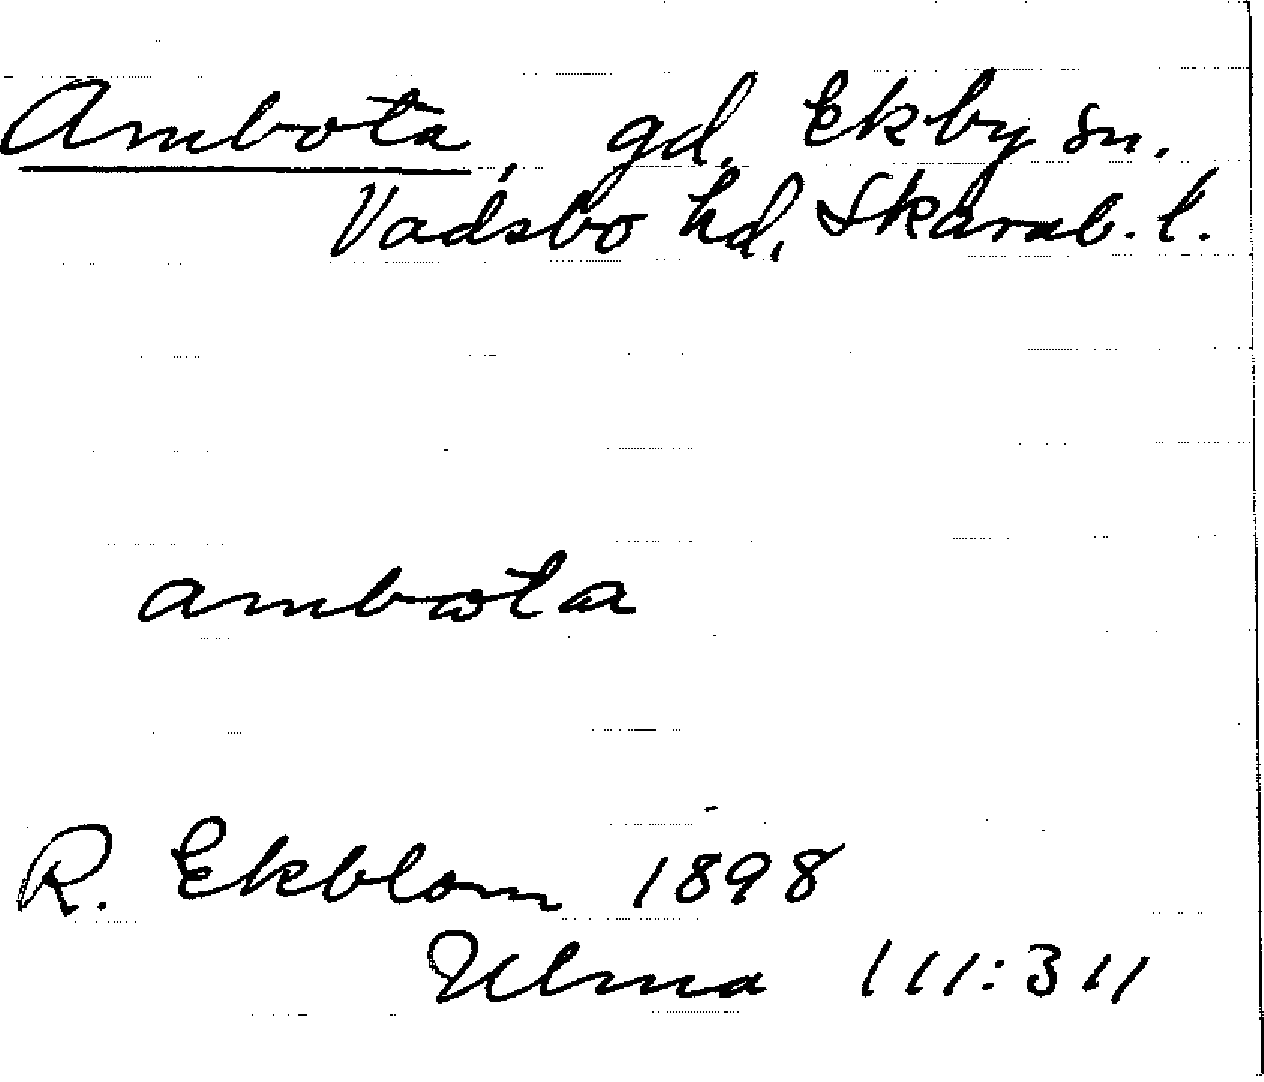 Ambota, gd, Ekby sn.
Vadsbo hd, Skarab. l.
ambωta
R. Ekblom 1898
Ulma 111:311